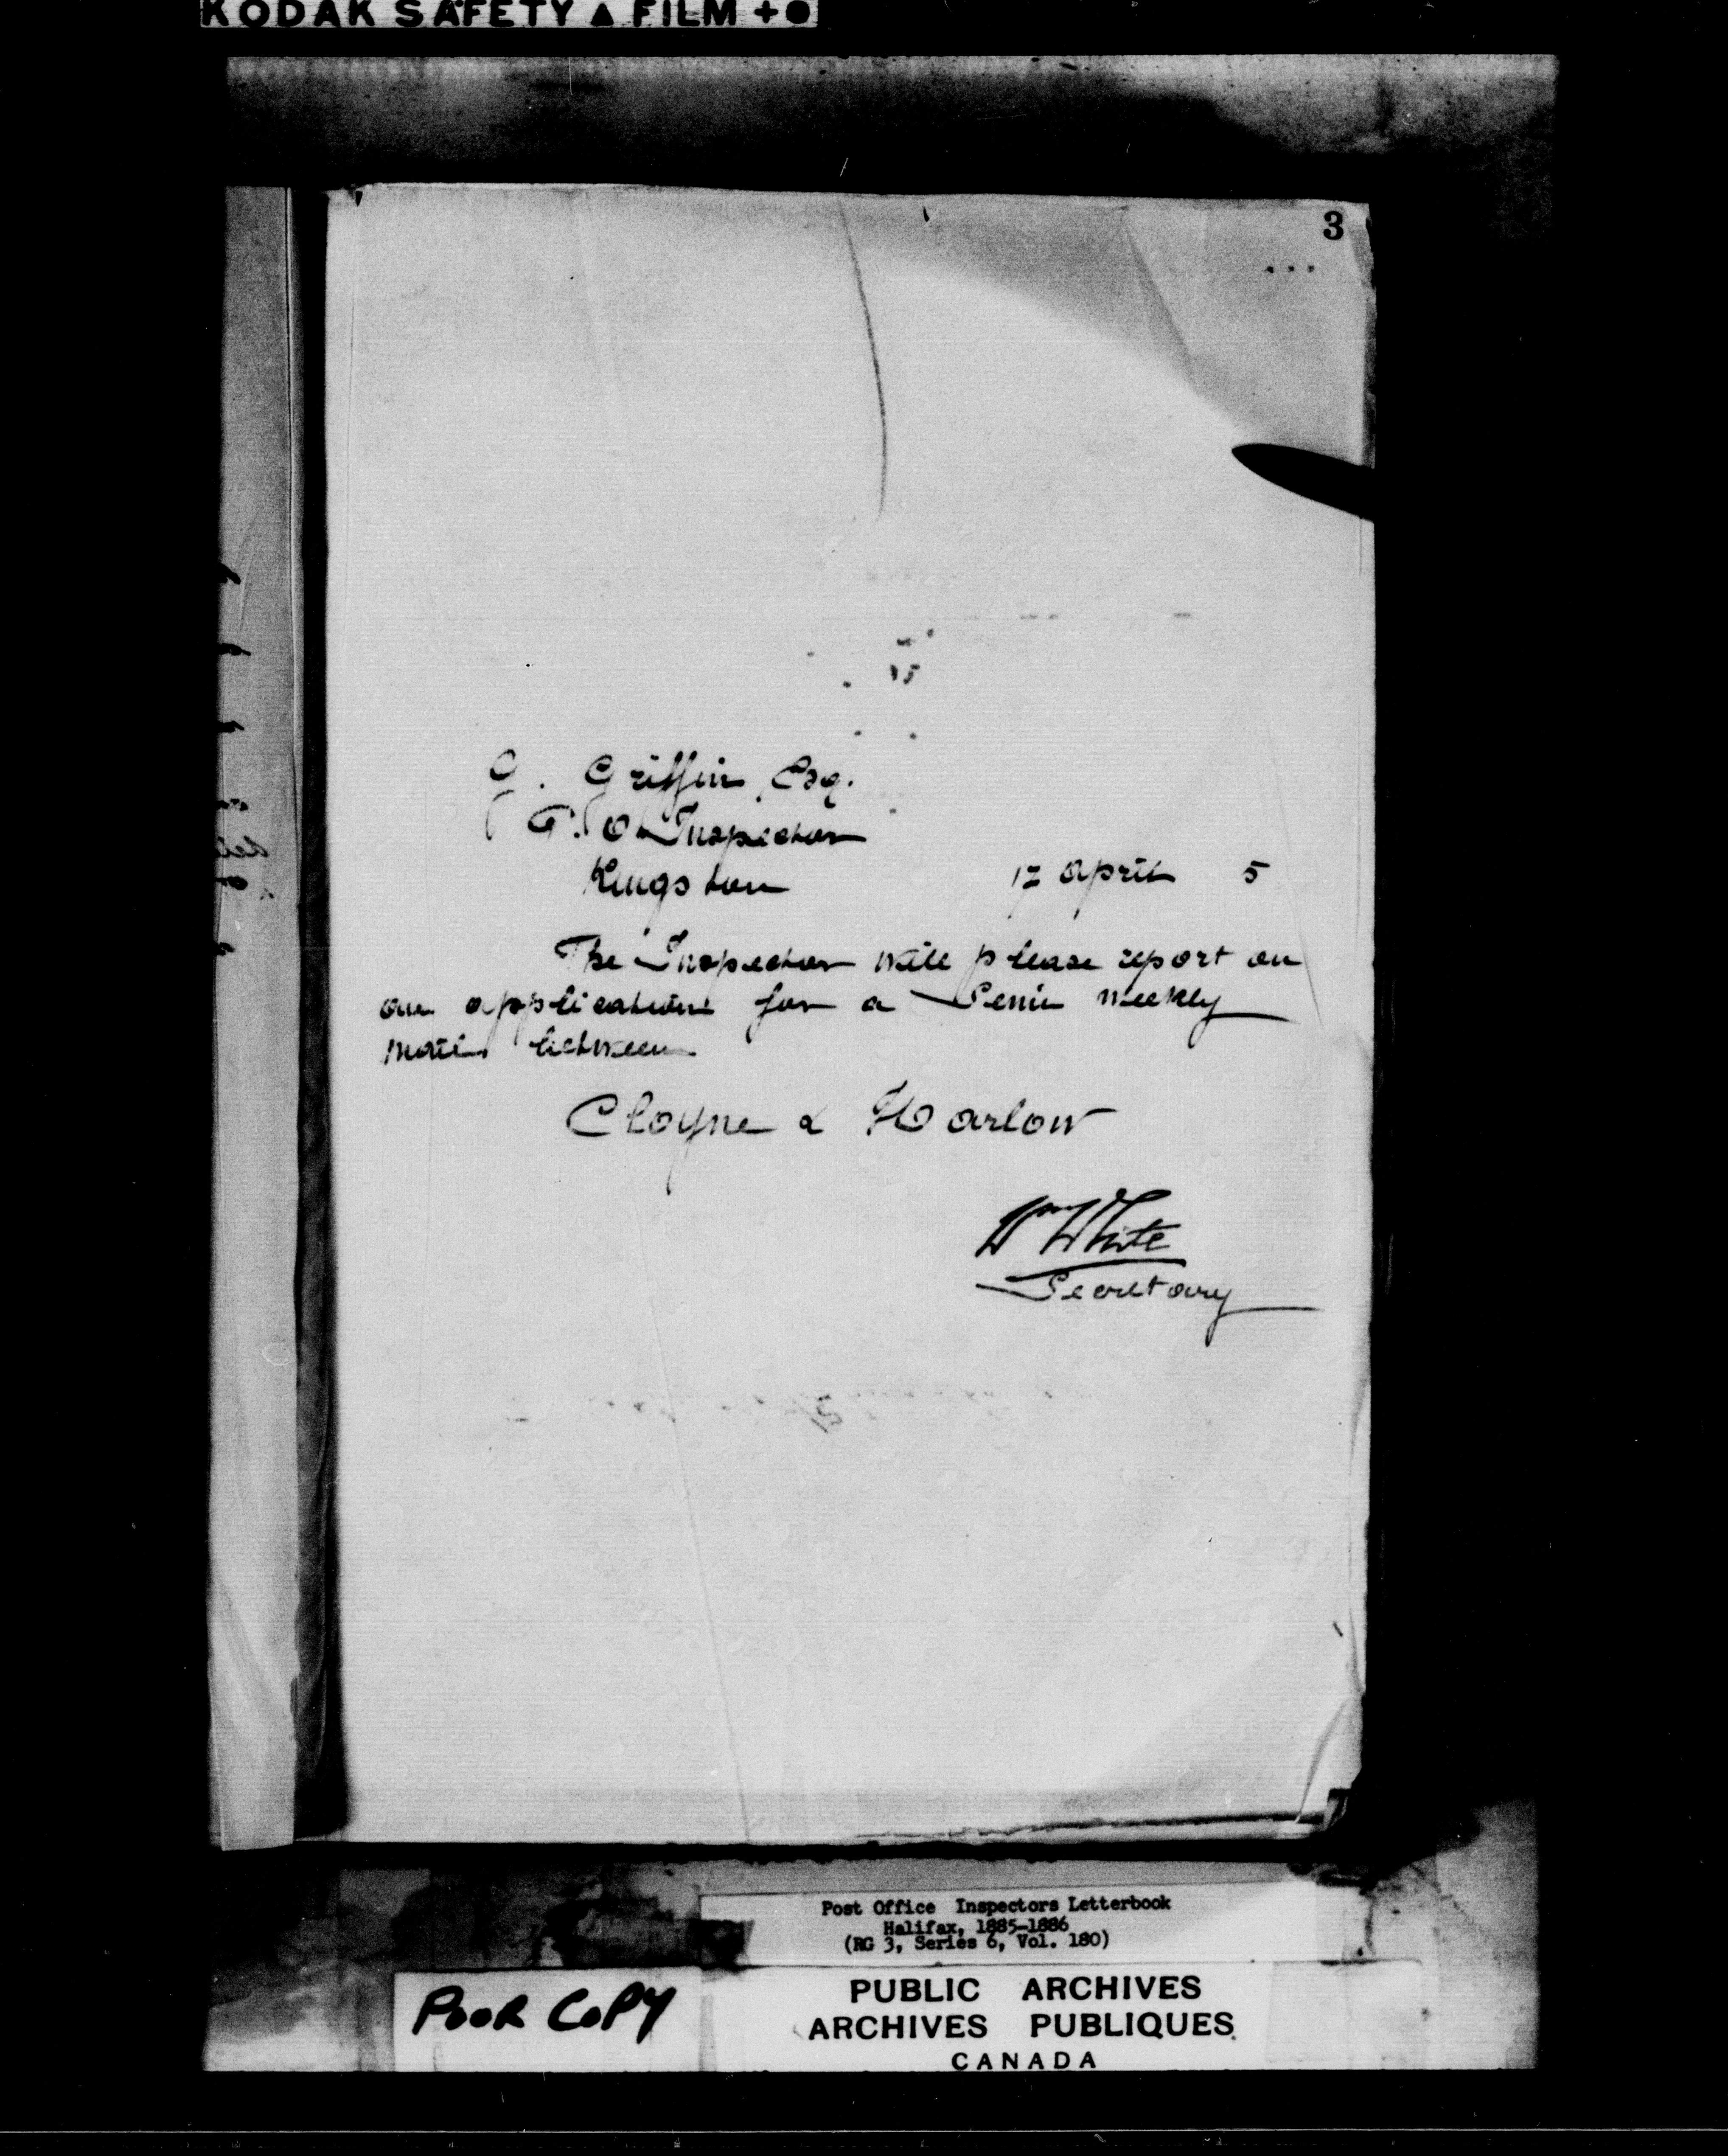 KODAK SAFETY ▲ FILM + ●
3
G. Griffin, Esq.
P. O. Inspector
Kingston 17 April 5
The Inspector will please report on
an application for a Semi Weekly
mail between
Cloyne & Harlow
Wm White
Secretary
Post Office Inspectors Letterbook
Halifax, 1885-1886
(RG 3, Series 6, Vol. 180)
POOR COPY
PUBLIC ARCHIVES
ARCHIVES PUBLIQUES
CANADA